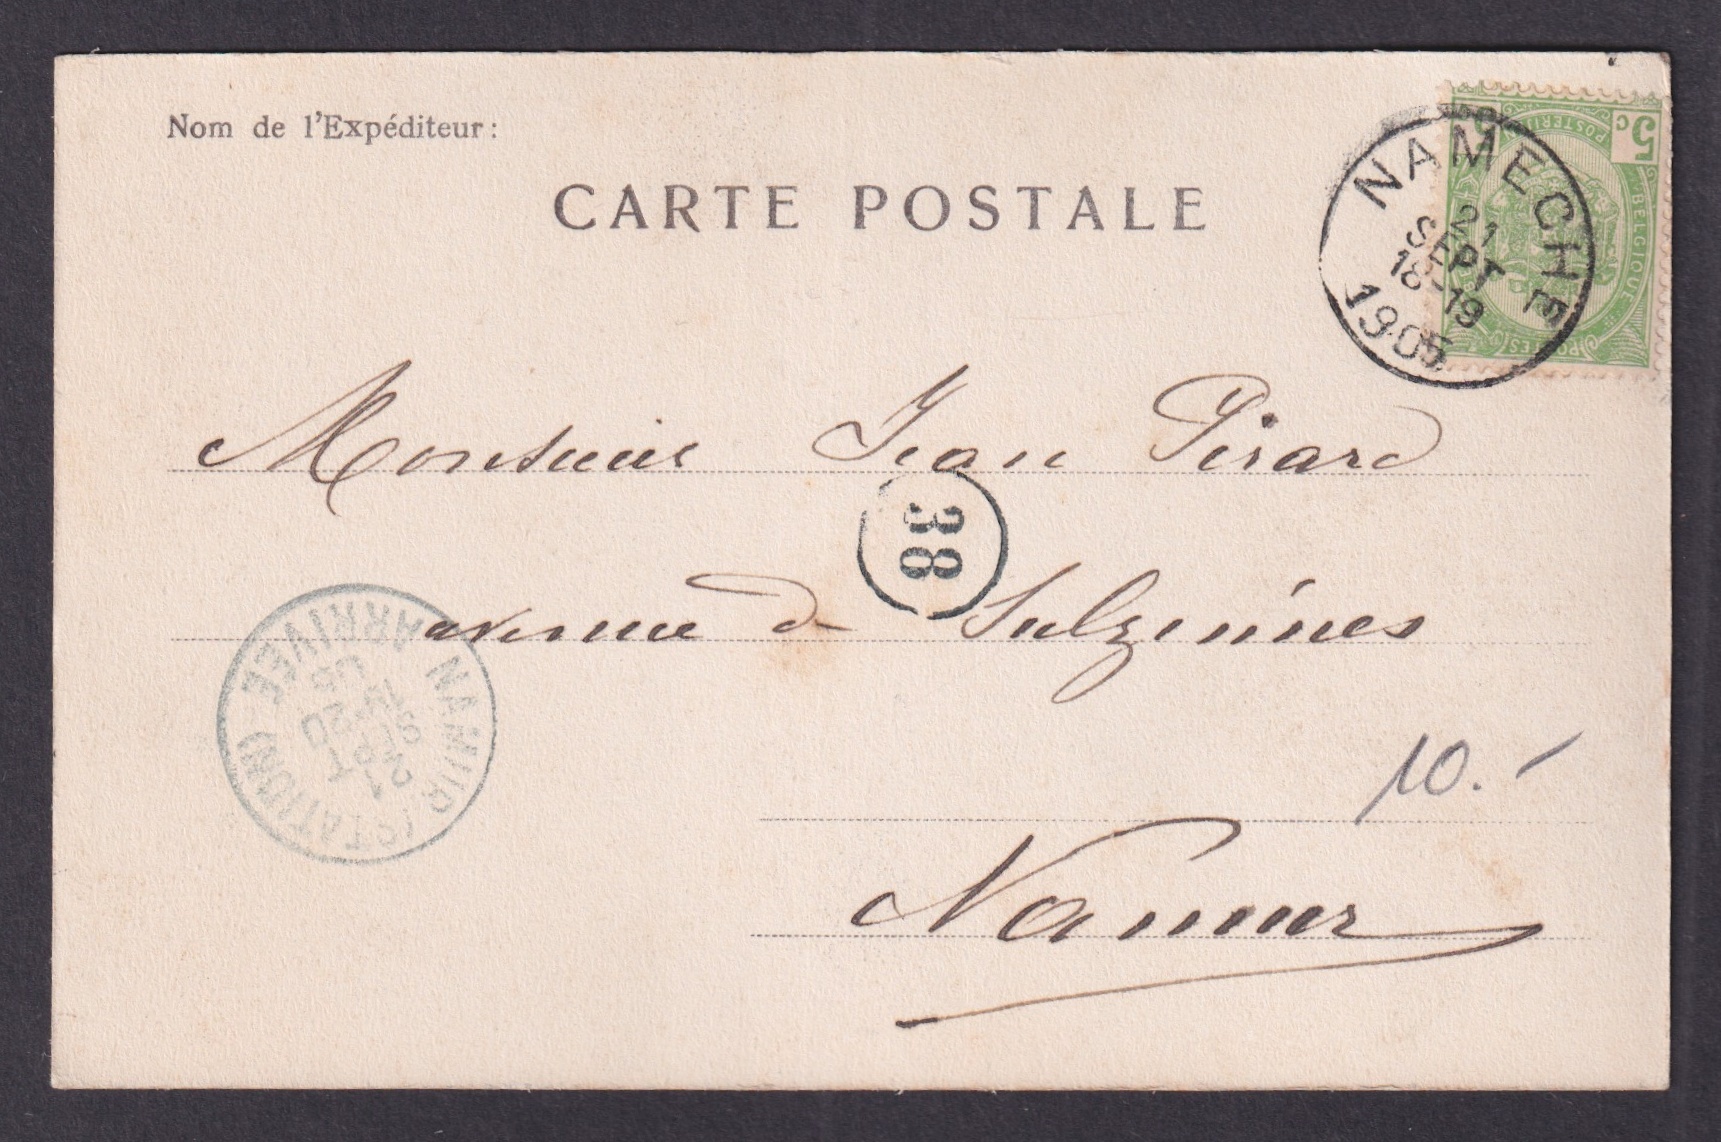 Nom de l'Expéditeur:
CARTE POSTALE
5 c 5 c
POSTERIJEN
BELGIQUE
POSTES
NAMECHE
21
SEPT
18-19
1905
Monsieur Jean Pirard
38
avenue de Salzinnes
NAMUR (STATION)
ARRIVÉE
21
SEPT
19-20
05
10.-
Namur